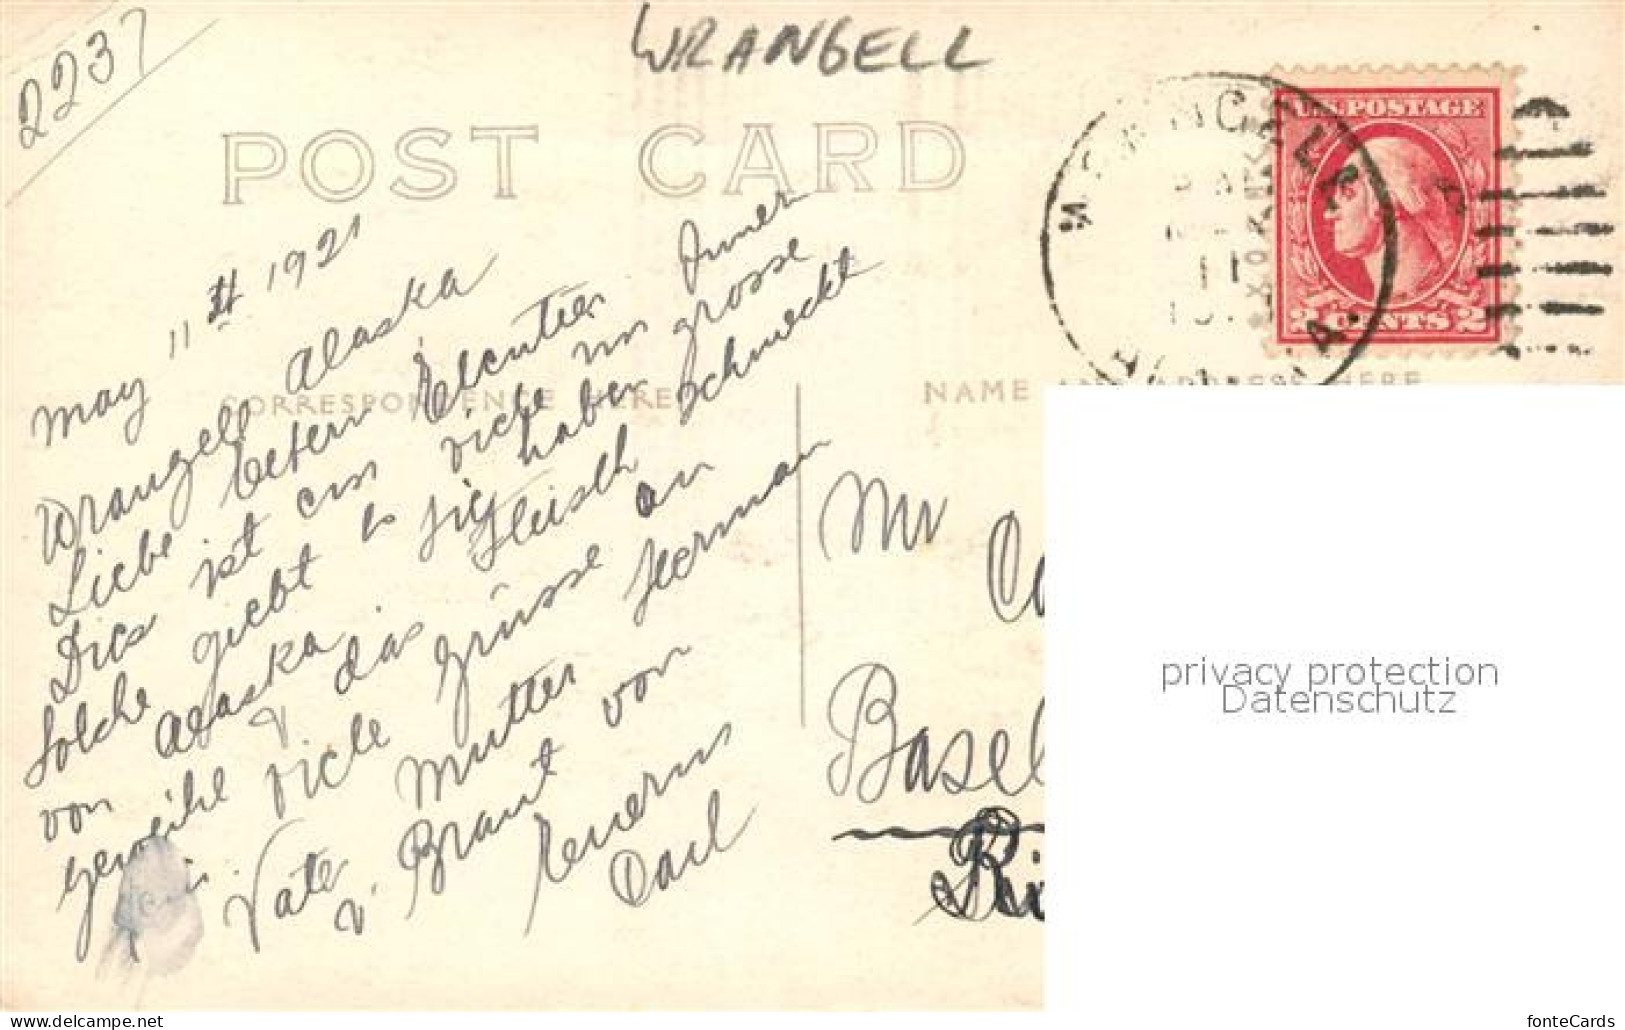 2237
WRANGELL
POST CARD
U.S. POSTAGE
2 CENTS 2
WRANGELL
11
CORRESPONDENCE HERE
NAME AND ADDRESS HERE
May 11th 1921
Wrangell Alaska
Liebe Eltern
Dies ist ein Elentier
Solche giebt es viele im Inner
von Alaska sig haben grosse
geweihe u das Fleisch schmeckt
Viele Grüsse an
Vater Mutter Herman
u Braut von
Euerm
Carl
Mr
Ca
Basel
Ri
privacy protection
Datenschutz
www.delcampe.net
fonteCards